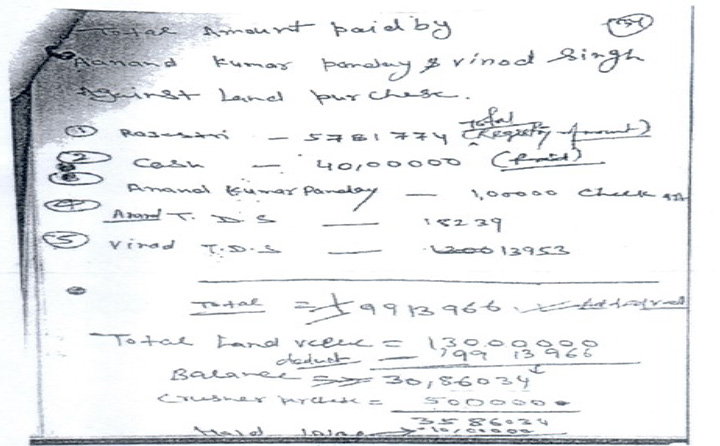 Total Amount paid by
Aanand Kumar panday & Vinod Singh
Against Land purchese.
① Rajestri — 5781774 Total (Registry Amount)
② Cash — 40,00000 (Paid)
Anand Kumar Panday — 1,00000 Check
④ Anand T. D. S — 18239
⑤ Vinod T.D.S — 13953
Total = 9913966
Total Land velue = 130,00000
deduct — 99 13 966
Balance => 30,86034
Crusher = 500000
3586034